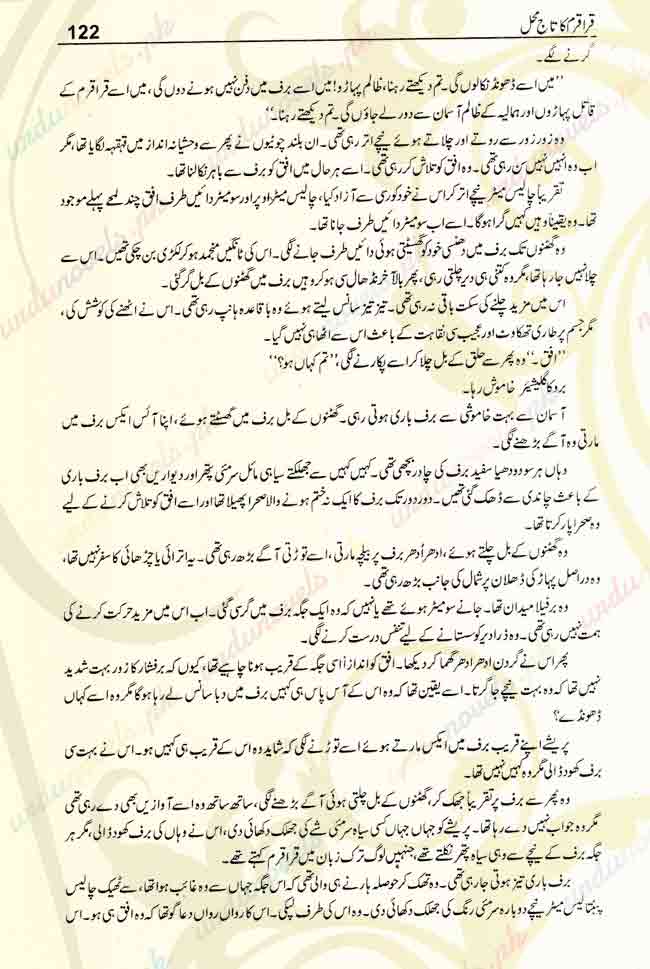 قراقرم کا تاج محل
122
گرنے لگے۔
’’میں اسے ڈھونڈ نکالوں گی۔ تم دیکھتے رہنا، ظالم پہاڑو! میں اسے برف میں دفن نہیں ہونے دوں گی، میں اسے قراقرم کے
قاتل پہاڑوں اور ہمالیہ کے ظالم آسمان سے دور لے جاؤں گی۔ تم دیکھتے رہنا۔‘‘
وہ زور زور سے روتے اور چلاتے ہوئے نیچے اتر رہی تھی۔ ان بلند چوٹیوں نے پھر سے وحشیانہ انداز میں قہقہہ لگایا تھا، مگر
اب وہ انہیں نہیں سن رہی تھی۔ وہ افق کو تلاش کر رہی تھی۔ اسے ہر حال میں افق کو برف سے باہر نکالنا تھا۔
تقریباً چالیس میٹر نیچے اتر کر اس نے خود کو رسی سے آزاد کیا، چالیس میٹر اوپر اور سو میٹر دائیں طرف افق چند لمحے پہلے موجود
تھا۔ وہ یقیناً وہیں کہیں گرا ہوگا۔ اسے اب سو میٹر دائیں طرف جانا تھا۔
وہ گھٹنوں تک برف میں دھنسی خود کو گھسیٹتی ہوئی دائیں طرف جانے لگی۔ اس کی ٹانگیں منجمد ہو کر لکڑی بن چکی تھیں۔ اس سے
چلا نہیں جا رہا تھا، مگر وہ کتنی ہی دیر چلتی رہی، پھر بالآخر نڈھال سی ہو کر وہیں برف میں گھٹنوں کے بل گر گئی۔
اس میں مزید چلنے کی سکت باقی نہ رہی تھی۔ تیز تیز سانس لیتے ہوئے وہ باقاعدہ ہانپ رہی تھی۔ اس نے اٹھنے کی کوشش کی،
مگر جسم پر طاری تھکاوٹ اور عجیب سی نقاہت کے باعث اس سے اٹھا ہی نہیں گیا۔
’’افق۔‘‘ وہ پھر سے حلق کے بل چلا کر اسے پکارنے لگی، ’’تم کہاں ہو؟‘‘
برو کا گلیشیئر خاموش رہا۔
آسمان سے بہت خاموشی سے برف باری ہوتی رہی۔ گھٹنوں کے بل برف میں گھسٹتے ہوئے، اپنا آئس ایکس برف میں
مارتی وہ آگے بڑھنے لگی۔
وہاں ہر سو دودھیا سفید برف کی چادر بچھی تھی۔ کہیں کہیں سے جھلکتے سیاہی مائل سرمئی پتھر اور دیواریں بھی اب برف باری
کے باعث چاندی سے ڈھک گئی تھیں۔ دور دور تک برف کا ایک نہ ختم ہونے والا صحرا پھیلا تھا اور اسے افق کو تلاش کرنے کے لیے
وہ صحرا پار کرنا تھا۔
وہ گھٹنوں کے بل چلتے ہوئے، ادھر اُدھر برف پر بیلچہ مارتی، اسے توڑتی آگے بڑھ رہی تھی۔ یہ اترائی یا چڑھائی کا سفر نہیں تھا،
وہ دراصل پہاڑ کی ڈھلان پر شمال کی جانب بڑھ رہی تھی۔
وہ برفیلا میدان تھا۔ جانے سو میٹر ہوئے تھے یا نہیں کہ وہ ایک جگہ برف میں گر سی گئی۔ اب اس میں مزید حرکت کرنے کی
ہمت نہیں رہی تھی۔ وہ ذرا دیر کو ستانے کے لیے تنفس درست کرنے لگی۔
پھر اس نے گردن ادھر ادھر گھما کر دیکھا۔ افق کو اندازاً اسی جگہ کے قریب ہونا چاہیے تھا، کیوں کہ برفشار کا زور بہت شدید
نہیں تھا کہ وہ بہت نیچے جا گرتا۔ اسے یقین تھا کہ وہ اس کے آس پاس ہی کہیں برف میں دبا سانس لے رہا ہوگا مگر وہ اسے کہاں
ڈھونڈے؟
پریشے اپنے قریب برف میں ایکس مارتے ہوئے اسے توڑنے لگی کہ شاید وہ اس کے قریب ہی کہیں ہو۔ اس نے بہت سی
برف کھود ڈالی مگر وہ کہیں نہیں تھا۔
وہ پھر سے برف پر تقریباً جھک کر، گھٹنوں کے بل چلتی ہوئی آگے بڑھنے لگی، ساتھ ساتھ وہ اسے آوازیں بھی دے رہی تھی
مگر وہ جواب نہیں دے رہا تھا۔ پریشے کو جہاں جہاں کسی سیاہ سرمئی شے کی جھلک دکھائی دی، اس نے وہاں کی برف کھود ڈالی، مگر ہر
جگہ برف کے نیچے سے وہی سیاہ پتھر نکلتے تھے، جنہیں لوگ ترک زبان میں قراقرم کہتے تھے۔
برف باری تیز ہوتی جا رہی تھی۔ وہ تھک کر حوصلہ ہارنے ہی والی تھی کہ اس جگہ جہاں سے وہ غائب ہوا تھا، سے ٹھیک چالیس
پینتالیس میٹر نیچے دوبارہ سرمئی رنگ کی جھلک دکھائی دی۔ وہ اس کی طرف لپکی۔ اس کا رواں رواں دعا گو تھا کہ وہ افق ہی ہو۔ اس